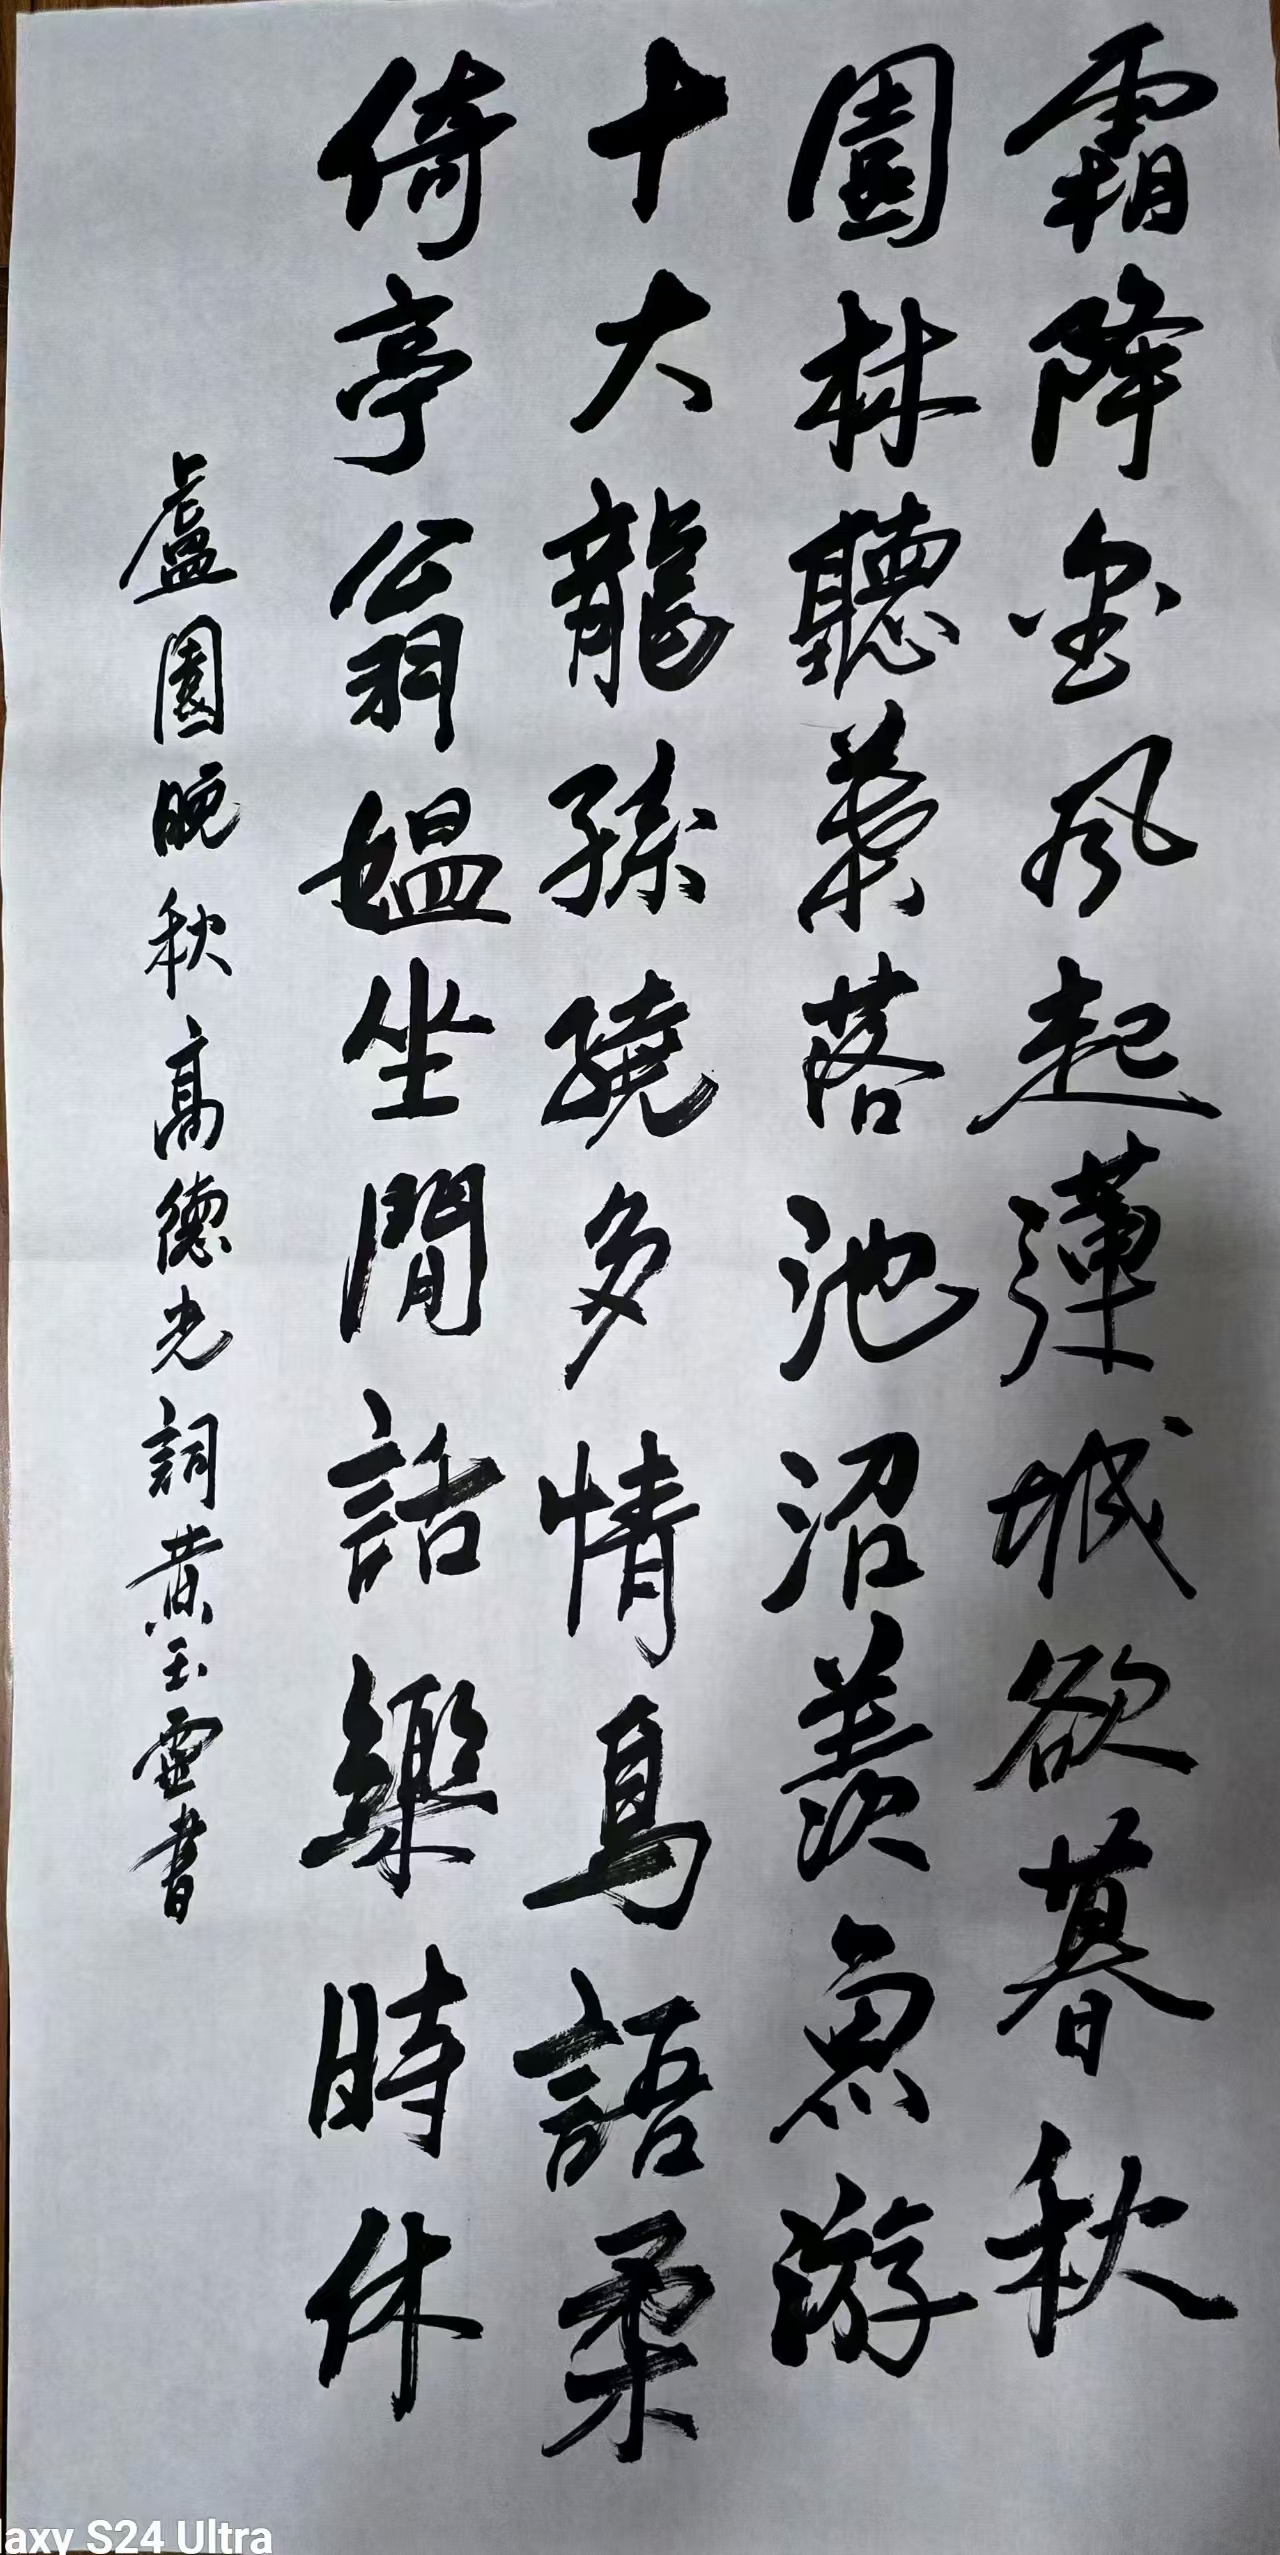 霜降金風起蓮城欲暮秋
園林聽葉落池沼羨魚游
十大龍孫繞多情鳥語柔
倚亭翁媼坐閒話樂時休
盧園晚秋高德光詞黄玉靈書
laxy S24 Ultra